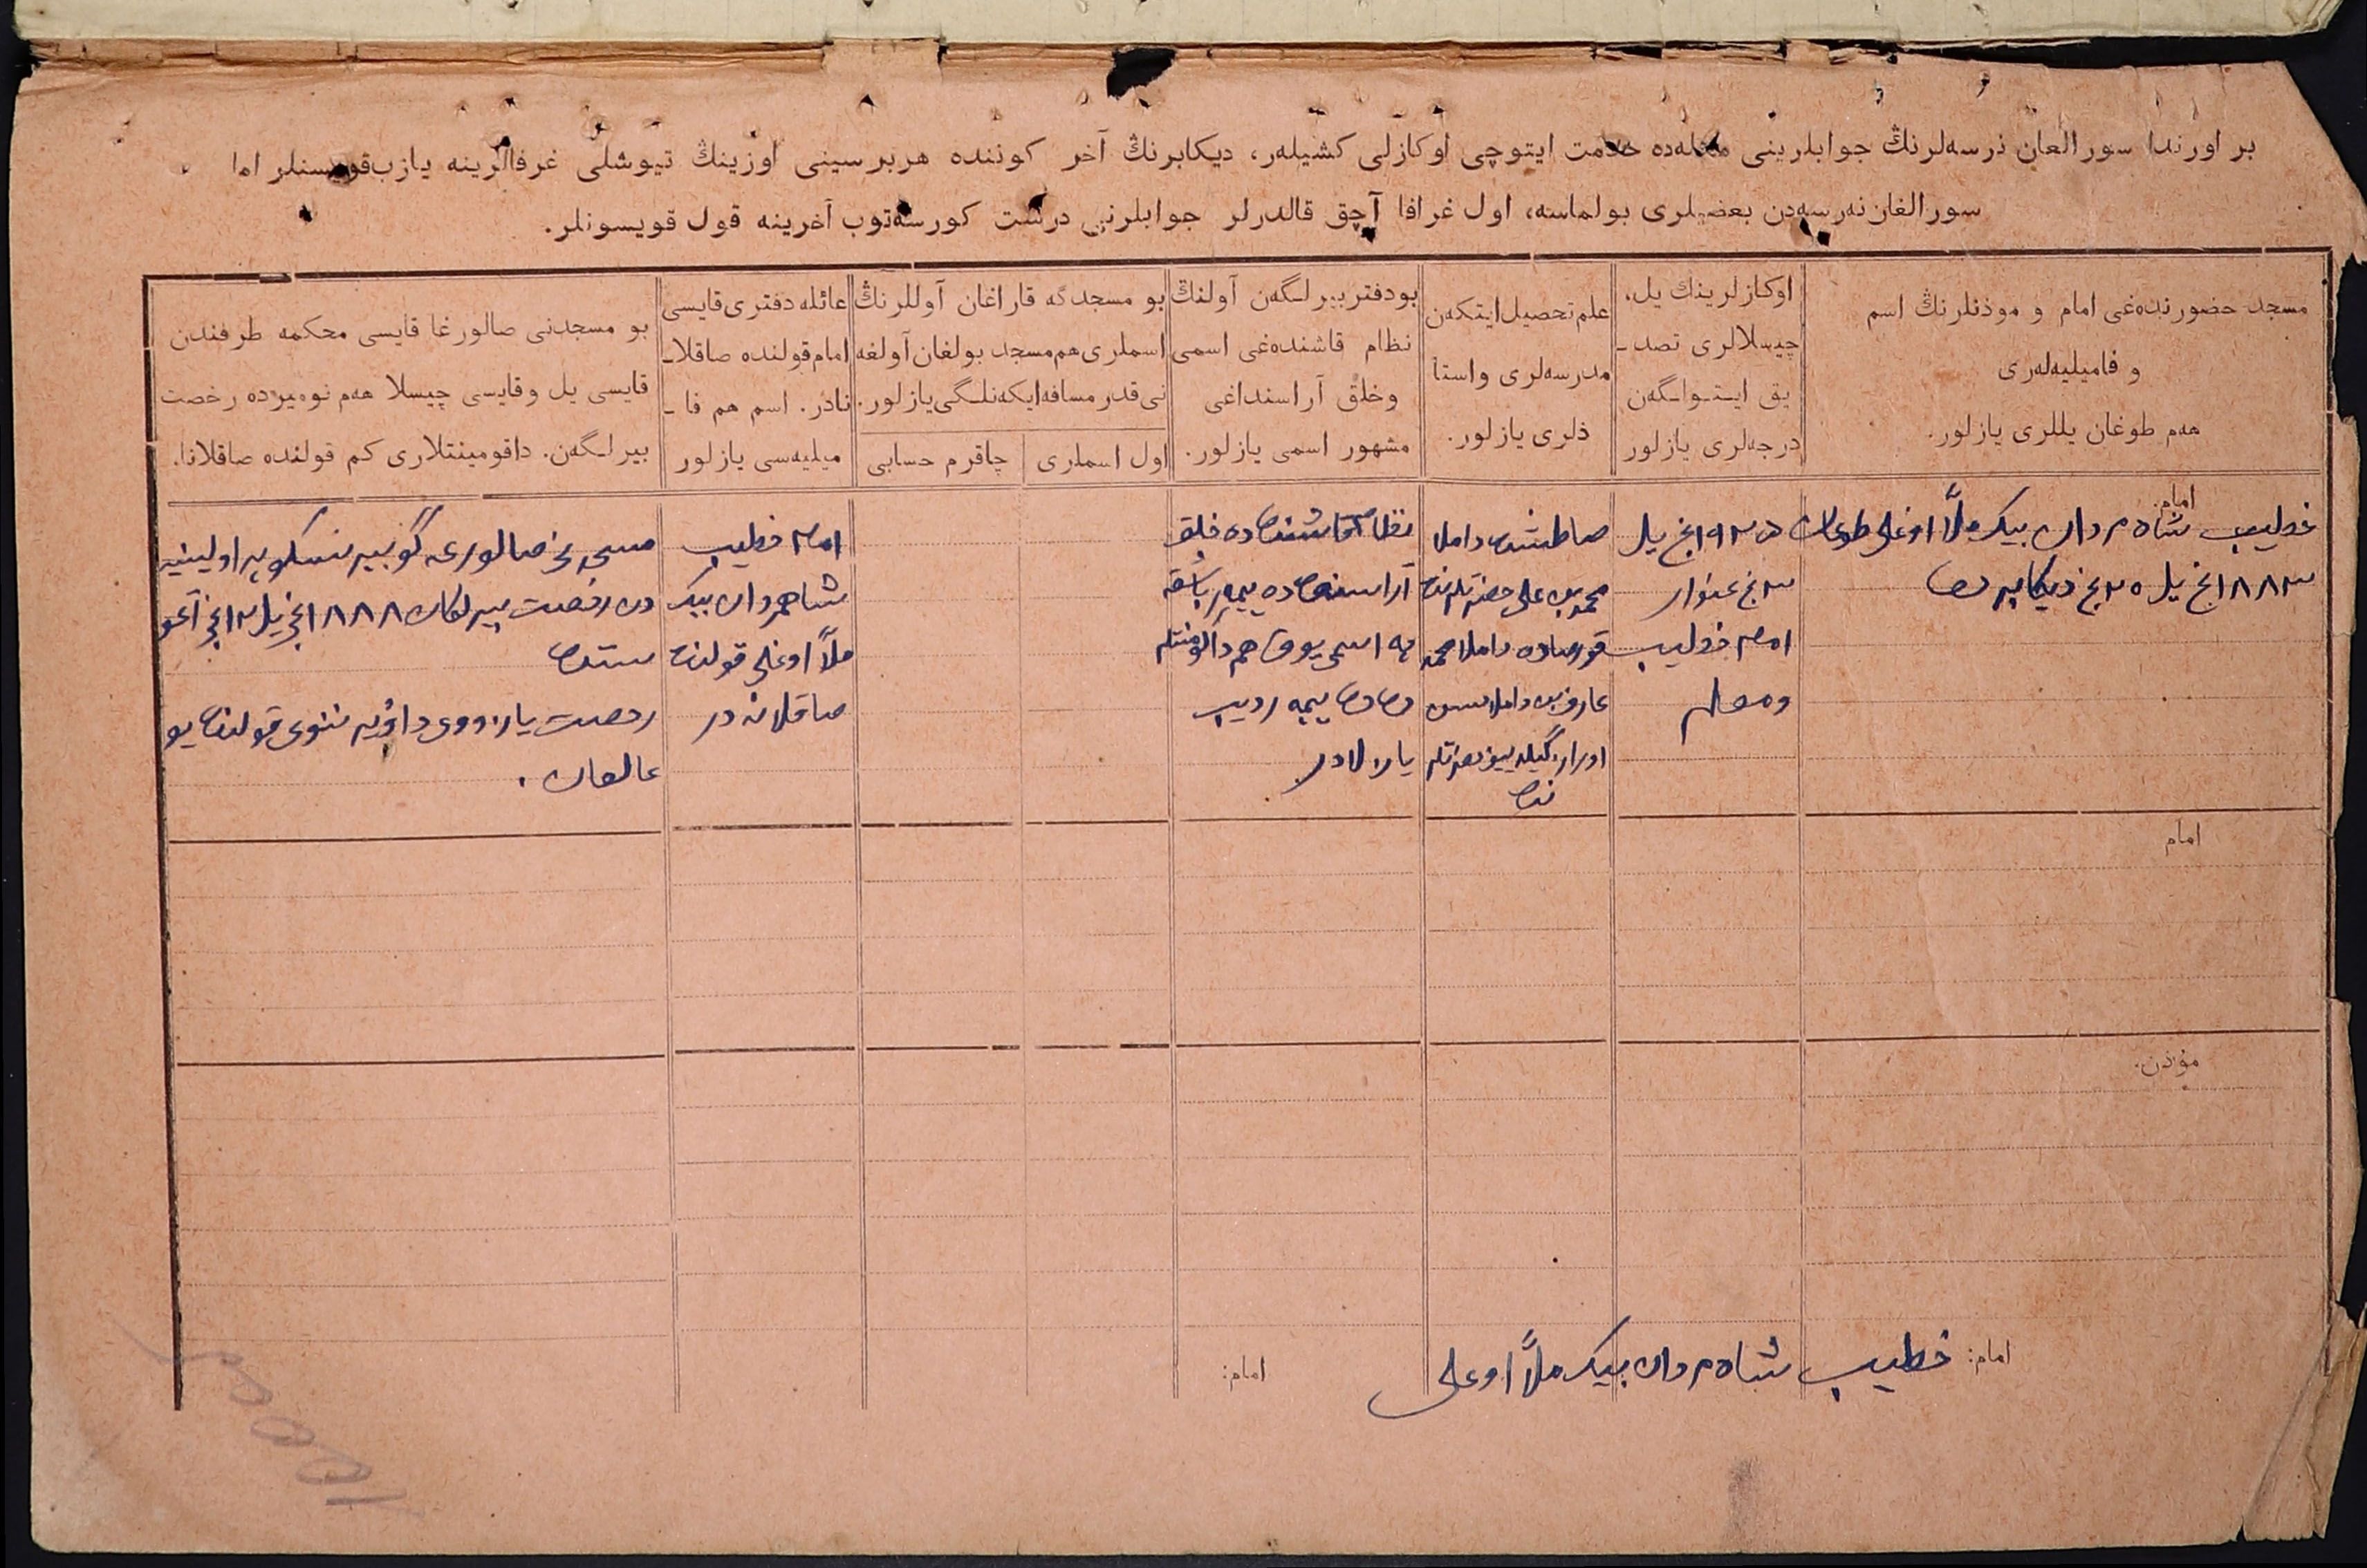 بر اورندا سورالغان نرسه‌لرنڭ جوابلرینی محله‌ده خدمت ایتوچی اوکازلی کشیله‌ر، دیکابرنڭ آخر کوننده هربرسینی اوزینڭ تیوشلی غرفالرینه یازب قویسنلر اما
سورالغان نه‌رسه‌دن بعضیلری بولماسه، اول غرافا آچق قالدرلر جوابلرنی درست کورسه‌توب آخرینه قول قویسونلر.
مسجد حضورنده‌غی امام و موذنلرنڭ اسم
و فامیلیه‌له‌ری
هه‌م طوغان یللری یازلور.
اوکازلرینك یل،
چیسلالری تصد-
یق ایتولگه‌ن
درجه‌لری یازلور
علم تحصیل ایتکه‌ن
مدرسه‌لری واستا
ذلری یازلور.
بودفتر بیرلگه‌ن آولنڭ
نظام قاشنده‌غی اسمی
وخلق آراسنداغی
مشهور اسمی یازلور.
بو مسجدگه قاراغان آوللرنڭ
اسملری هم مسجد بولغان آولغه
نی قدر مسافه ایکه‌نلگی یازلور.
اول اسملری
چاقرم حسابی
عائله دفتری قایسی
امام قولنده صاقلا-
نادر. اسم هم فا-
میلیه‌سی یازلور
بو مسجدنی صالورغا قایسی محکمه طرفندن
قایسی یل وقایسی چیسلا هه‌م نومیرده رخصت
بیرلگه‌ن. داقومینتلاری کم قولنده صاقلانا.
امام
خطیب شاه مردان بیک ملّا اوغلی طوغان
۱۸۸۳نچی یل ۲۵نچی دیکابرده
۱۹۲۵نچی یل
۳نچی غنوار
امام خطیب
ومعلم
داملا
قورصاده داملا محمد
عارف بن داملا
نده
نظام قاشنداده خلق
آراسنداده
هم
یازلادر
امام خطیب
شاهمردان بیک
ملّا اوغلی قولنده
صاقلانه در
مسجدنی صالورغه گوبیرنسکویه اولینیه
دن رخصت بیرلگان ۱۸۸۸نچی یل ۱۲نچی آغو
ستده
رخصت قولنده
عالغان.
امام
مؤذن.
امام: خطیب شاه مردان بیک ملّا اوغلی
امام: